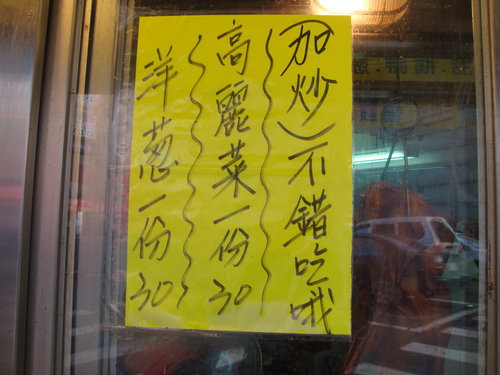 （加炒）不錯吃哦
高麗菜一份30
洋蔥一份30